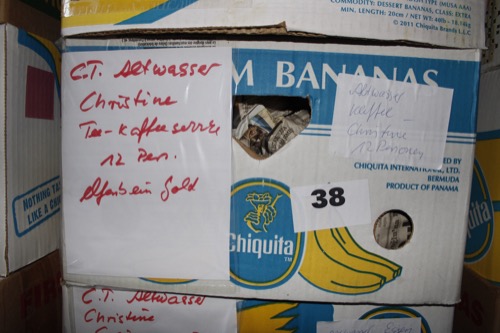 COMMODITY: DESSERT BANANAS, CLASS: EXTRA
MIN. LENGTH: 20cm / NET WT: 40lb - 18.14kg
© 2011 Chiquita Brands L.L.C.
C.T. Altwasser
Christine
Tee-Kaffeeservice
12 Pers.
Elfenbein Gold
M BANANAS
Altwasser
Kaffee
Christine
12 Personen
CHIQUITA INTERNATIONAL LTD.
BERMUDA
PRODUCT OF PANAMA
38
Chiquita
TM
NOTHING TA
LIKE A C
C.T. Altwasser
Christine